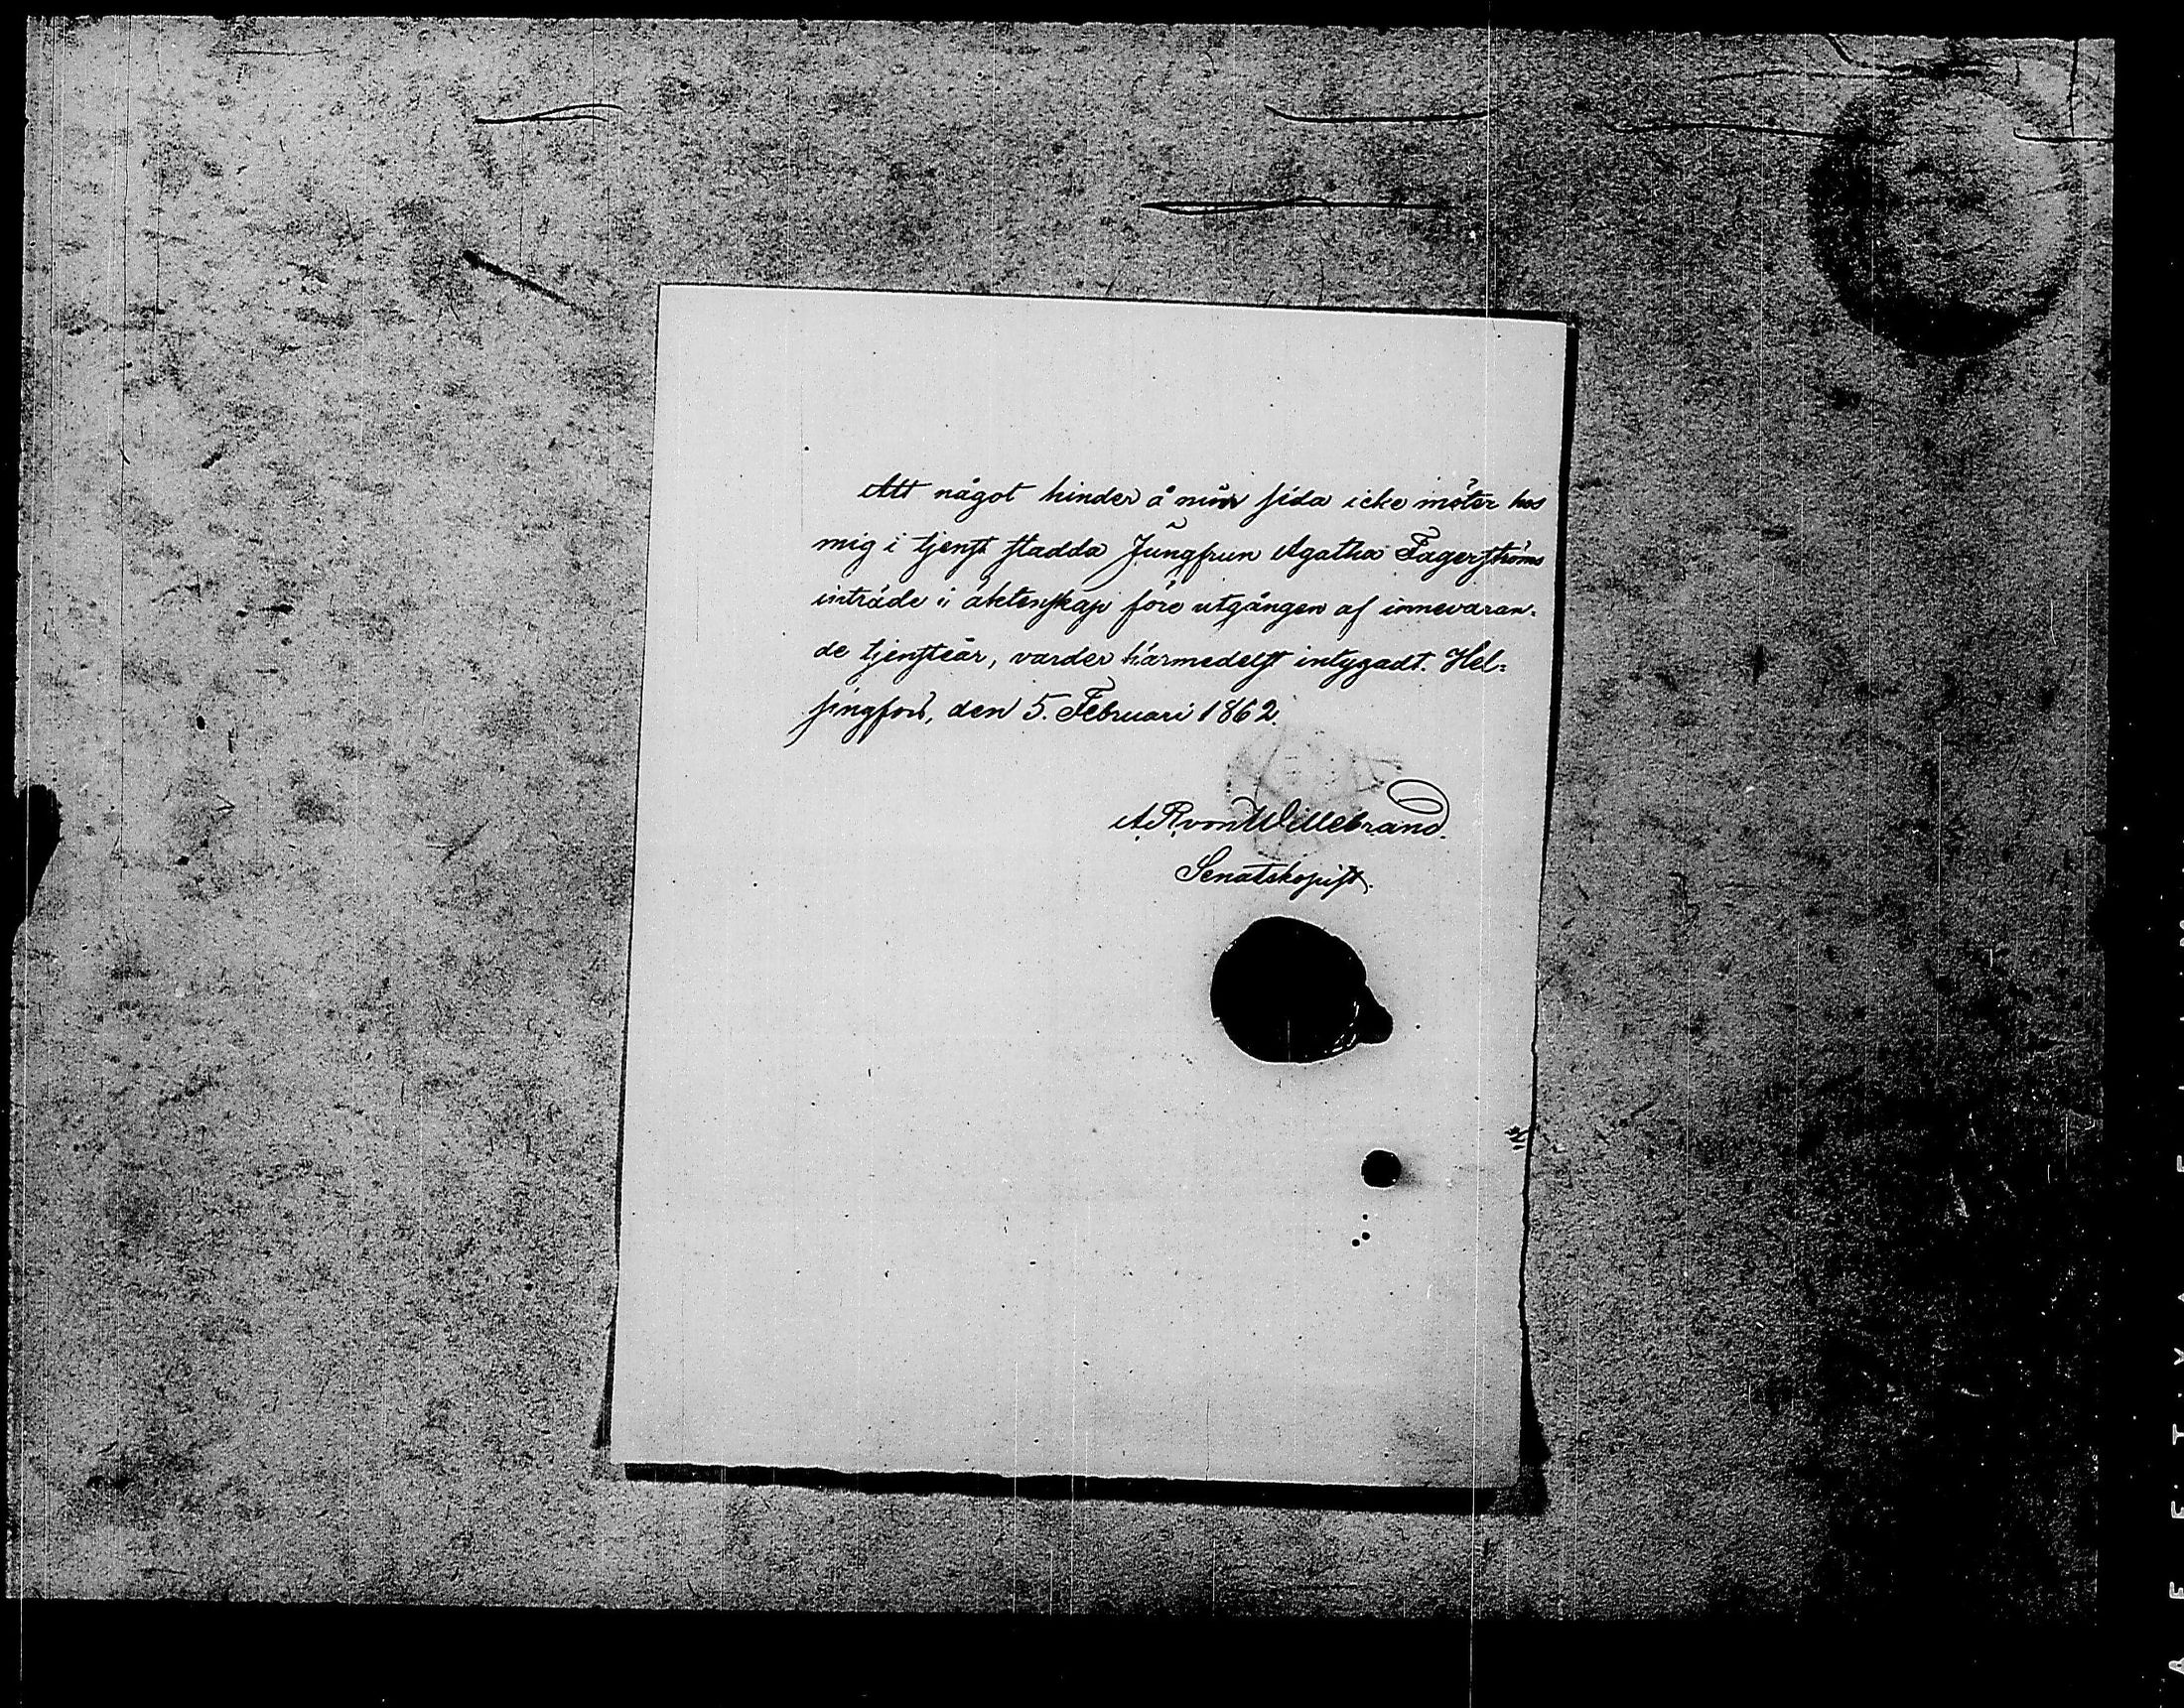 Att något hinder å min sida icke möter hos
mig i tjenst stadda Jungfrun Agatha Fagerströms
inträde i äktenskap före utgången af innevaran-
de tjensteår, varder härmedelst intygadt. Hel-
singfors, den 5. Februari 1862.
A. R. von Willebrand.
Senatskopist.